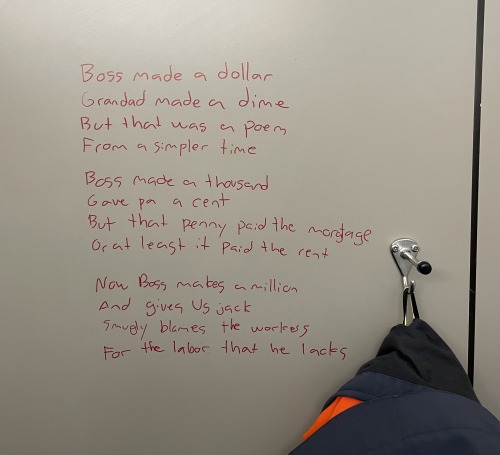 Boss made a dollar
Grandad made a dime
But that was a poem
From a simpler time
Boss made a thousand
Gave pa a cent
But that penny paid the morgtage
Or at least it paid the rent
Now Boss makes a million
And gives Us jack
Smugly blames the workers
For the labor that he lacks